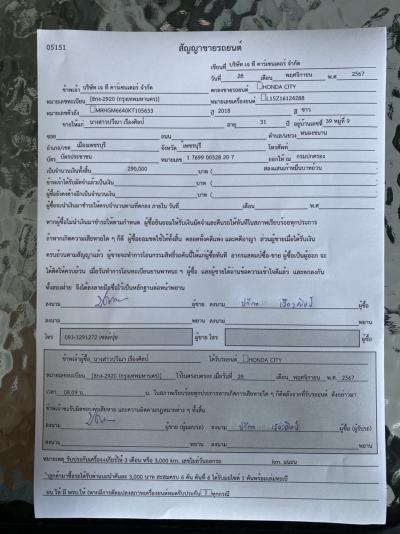 05151
สัญญาขายรถยนต์
เขียนที่ บริษัท เจ ที คาร์เซนเตอร์ จำกัด
วันที่ 28 เดือน พฤศจิกายน พ.ศ. 2567
ข้าพเจ้า บริษัท เจ ที คาร์เซนเตอร์ จำกัด ตกลงขายรถยนต์ HONDA CITY
หมายเลขทะเบียน [8กง-2920 (กรุงเทพมหานคร)] หมายเลขเครื่องยนต์ L15Z16124288
หมายเลขตัวถัง MRHGM6640KT105633 ปี 2018 สี ขาว
ขายให้แก่ นางสาวปวีณา เรืองศิลป์ อายุ 31 ปี อยู่บ้านเลขที่ 39 หมู่ที่ 9
ซอย ถนน ตำบล/แขวง หนองขนาน
อำเภอ/เขต เมืองเพชรบุรี จังหวัด เพชรบุรี โทรศัพท์
บัตร บัตรประชาชน หมายเลข 1 7699 00328 20 7 ออกให้ ณ กรมปกครอง
เป็นจำนวนเงินทั้งสิ้น 290,000 บาท ( สองแสนเก้าหมื่นบาทถ้วน
ข้าพเจ้าได้รับมัดจำแล้วเป็นเงิน บาท (
ผู้ซื้อยังคงค้างอีกเป็นจำนวนเงิน บาท (
ผู้ซื้อจะนำเงินมาชำระให้ครบจำนวนตามที่ตกลง ภายใน วันที่ เดือน พ.ศ.
หากผู้ซื้อไม่นำเงินมาชำระให้ตามกำหนด ผู้ซื้อยินยอมให้ริบเงินมัดจำและคืนรถให้ทันทีในสภาพเรียบร้อยทุกประการ
ถ้าหากเกิดความเสียหายใด ๆ ก็ดี ผู้ซื้อยอมชดใช้ให้ทั้งสิ้น ตลอดทั้งคดีแพ่ง และคดีอาญา ส่วนผู้ขายเมื่อได้รับเงิน
ครบถ้วนตามสัญญาแล้ว ผู้ขายจะทำการโอนกรรมสิทธิ์รถคันนี้ให้แก่ผู้ซื้อทันที
จะได้ตัดให้ครบถ้วน เมื่อวันทำการโอนทะเบียนยานพาหนะ ฯ ผู้ซื้อ และผู้ขายได้อ่านข้อความเข้าใจดีแล้ว และตกลงกัน
ทั้งสองฝ่าย จึงได้ลงลายมือชื่อไว้เป็นหลักฐานต่อหน้าพยาน
ลงนาม ผู้ขาย ลงนาม ปวีณา เรืองศิลป์ ผู้ซื้อ
ลงนาม พยาน ลงนาม พยาน
โทร 093-3291272 เซลล์ปุ้ย ผู้ขาย โทร ผู้ซื้อ
ข้าพเจ้าผู้ซื้อ นางสาวปวีณา เรืองศิลป์ ได้รับรถยนต์ HONDA CITY
หมายเลขทะเบียน [8กง-2920 (กรุงเทพมหานคร)] ไว้ในครอบครอง เมื่อวันที่ 28 เดือน พฤศจิกายน พ.ศ. 2567
เวลา 08.09 น. ในสภาพเรียบร้อยทุกประการ
ข้าพเจ้าจะรับผิดชอบความเสียหาย และความผิดตามกฎหมายต่าง ๆ ทั้งสิ้น
ลงนาม ผู้ขาย (ผู้มอบรถ) ลงนาม ปวีณา เรืองศิลป์ ผู้ซื้อ (ผู้รับรถ)
ลงนาม พยาน ลงนาม พยาน
หมายเหตุ รับประกันเครื่อง+เกียร์ให้ 3 เดือน หรือ 3,000 km. เลขไมล์วันออกรถ km.